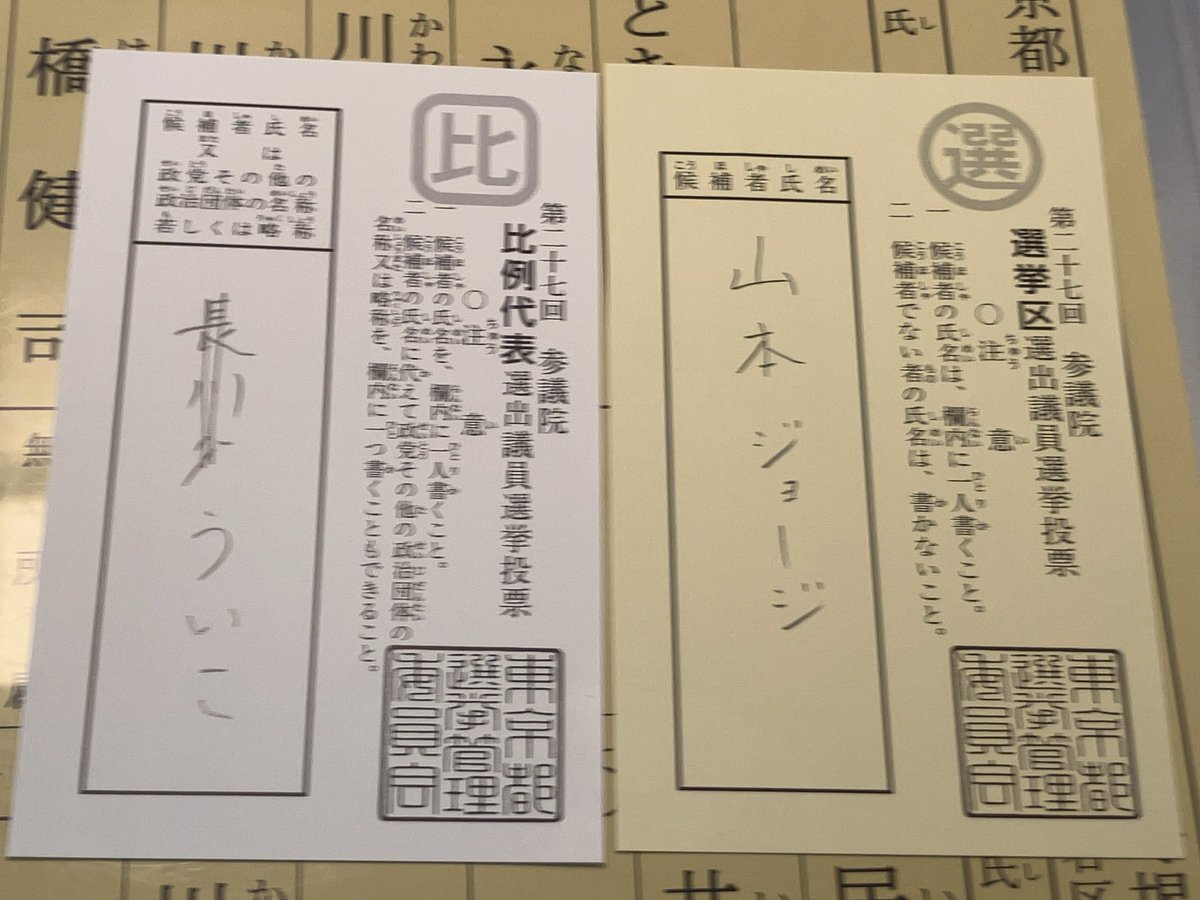 京都
氏
し
川
かわ
橋
健
司
無
所
選
第二十七回 参議院
選挙区選出議員選挙投票
〇注意
一 候補者の氏名は、欄内に一人書くこと。
二 候補者でない者の氏名は、書かないこと。
候補者氏名
山本ジョージ
東京都
選挙管理
委員会
比
第二十七回 参議院
比例代表選出議員選挙投票
〇注意
一 候補者の氏名を、欄内に一人書くこと。
二 候補者の氏名に代えて政党その他の政治団体の
名称又は略称を、欄内に一つ書くこともできること。
候補者氏名
又は
政党その他の
政治団体の名称
若しくは略称
長 ういこ
東京都
選挙管理
委員会
氏
し